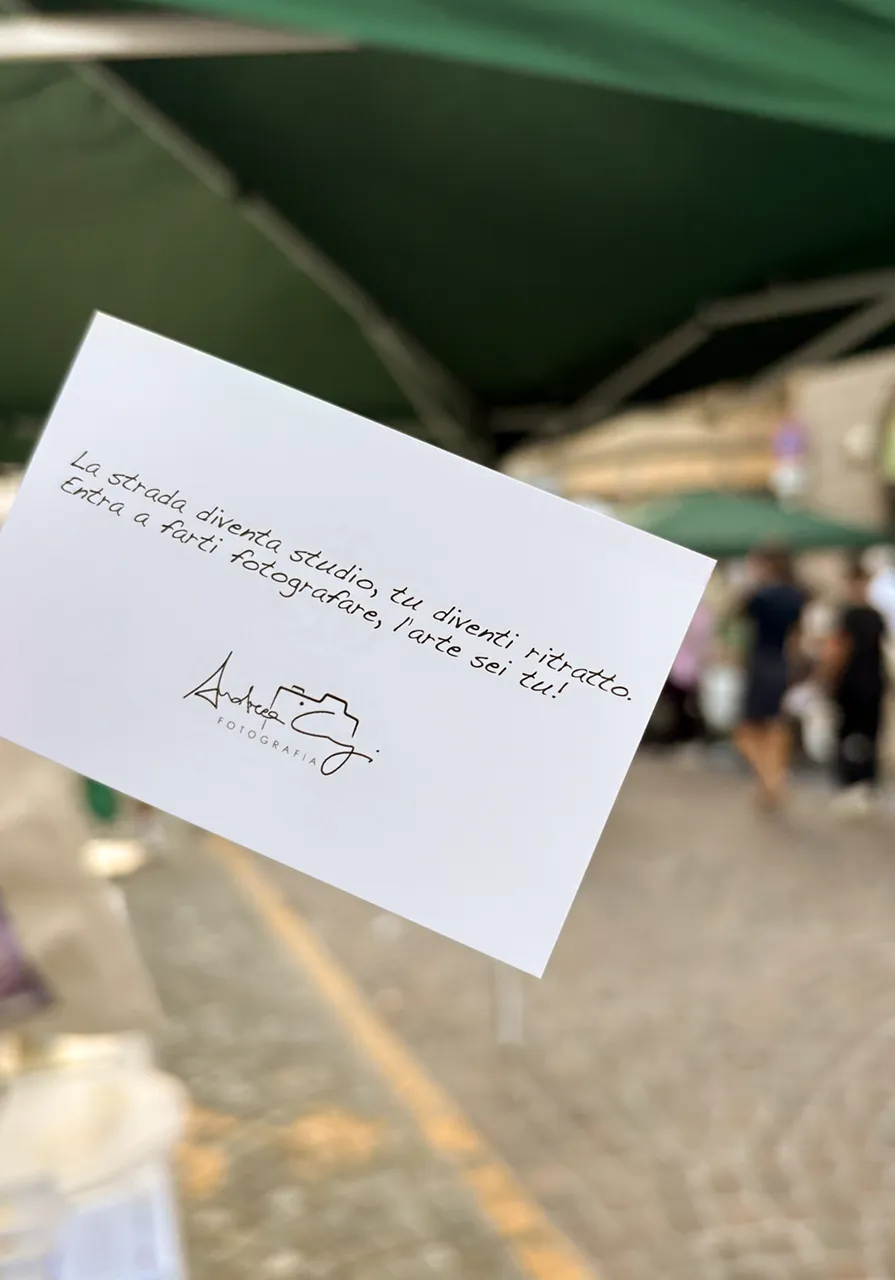 La strada diventa studio, tu diventi ritratto.
Entra a farti fotografare, l'arte sei tu!
Andrea
FOTOGRAFIA